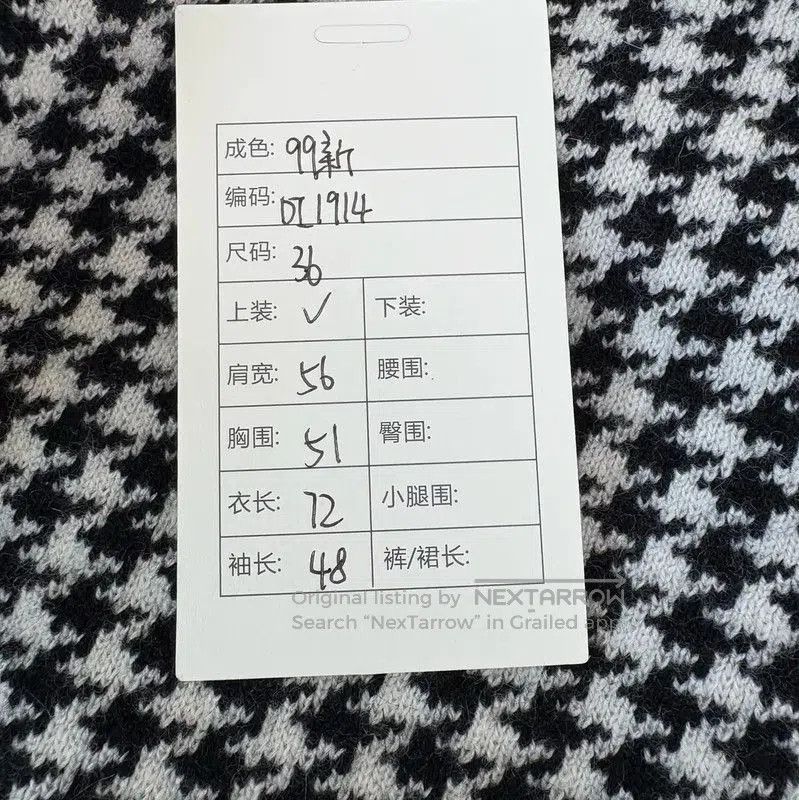 成色: 99新
编码: DZ1914
尺码: 36
上装: ✓ 下装:
肩宽: 56 腰围:
胸围: 51 臀围:
衣长: 72 小腿围:
袖长: 48 裤/裙长:
Original listing by NEXTARROW
Search “NexTarrow” in Grailed app